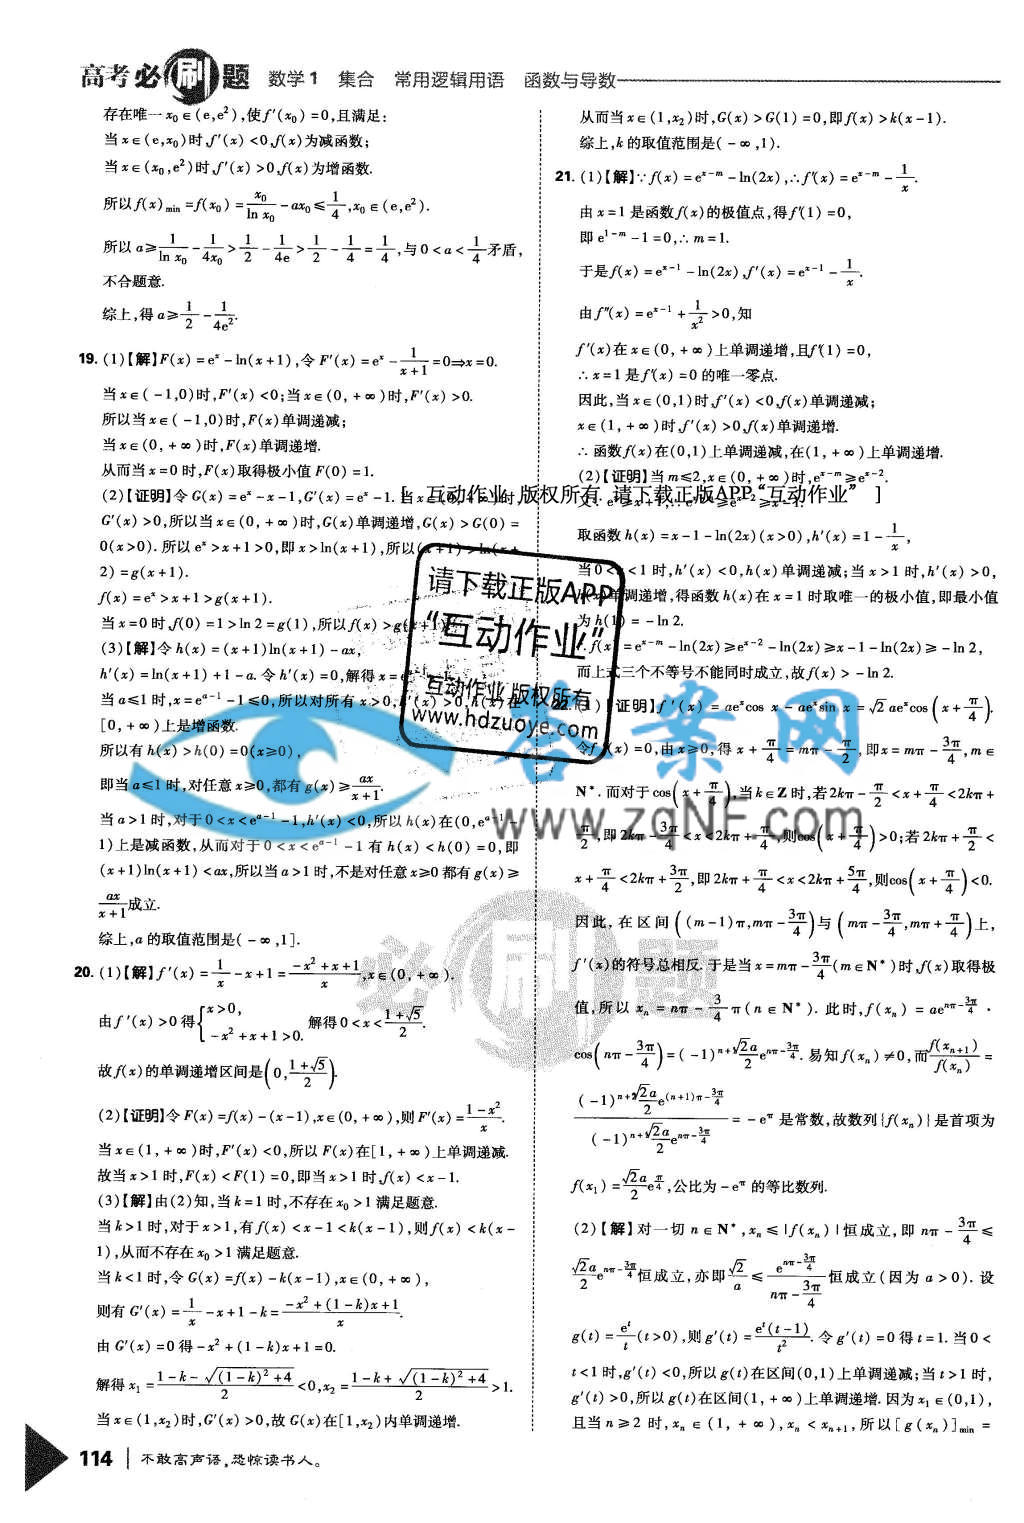 高考必刷题 数学1 集合 常用逻辑用语 函数与导数
存在唯一x₀∈(e,e²),使f′(x₀)=0,且满足:
当x∈(e,x₀)时,f′(x)<0,f(x)为减函数;
当x∈(x₀,e²)时,f′(x)>0,f(x)为增函数.
所以f(x)min=f(x₀)=x₀/ln x₀-ax₀≤1/4,x₀∈(e,e²).
所以a≥1/ln x₀-1/4x₀>1/2-1/4e>1/2-1/4=1/4,与0<a<1/4矛盾,
不合题意.
综上,得a≥1/2-1/4e².
19.(1)【解】F(x)=eˣ-ln(x+1),令F′(x)=eˣ-1/(x+1)=0⇒x=0.
当x∈(-1,0)时,F′(x)<0;当x∈(0,+∞)时,F′(x)>0.
所以当x∈(-1,0)时,F(x)单调递减;
当x∈(0,+∞)时,F(x)单调递增.
从而当x=0时,F(x)取得极小值F(0)=1.
(2)【证明】令G(x)=eˣ-x-1,G′(x)=eˣ-1.当x∈(0,+∞)时
G′(x)>0,所以当x∈(0,+∞)时,G(x)单调递增,G(x)>G(0)=
0(x>0).所以eˣ>x+1>0,即x>ln(x+1),所以(x+1)>ln(x+
2)=g(x+1).
f(x)=eˣ>x+1>g(x+1).
当x=0时,f(0)=1>ln 2=g(1),所以f(x)>g(x+1)
(3)【解】令h(x)=(x+1)ln(x+1)-ax,
h′(x)=ln(x+1)+1-a.令h′(x)=0,解得x=
当a≤1时,x=eᵃ⁻¹-1≤0,所以对所有x>0,h′(x)>0,h(x)在
[0,+∞)上是增函数.
所以有h(x)>h(0)=0(x≥0),
即当a≤1时,对任意x≥0,都有g(x)≥ax/(x+1).
当a>1时,对于0<x<eᵃ⁻¹-1,h′(x)<0,所以h(x)在(0,eᵃ⁻¹-
1)上是减函数,从而对于0<x<eᵃ⁻¹-1有h(x)<h(0)=0,即
(x+1)ln(x+1)<ax,所以当a>1时,不是对任意x≥0都有g(x)≥
ax/(x+1)成立.
综上,a的取值范围是(-∞,1].
20.(1)【解】f′(x)=1/x-x+1=(-x²+x+1)/x,x∈(0,+∞).
由f′(x)>0得{x>0, -x²+x+1>0. 解得0<x<(1+√5)/2.
故f(x)的单调递增区间是(0,(1+√5)/2).
(2)【证明】令F(x)=f(x)-(x-1),x∈(0,+∞),则F′(x)=(1-x²)/x.
当x∈(1,+∞)时,F′(x)<0,所以F(x)在[1,+∞)上单调递减.
故当x>1时,F(x)<F(1)=0,即当x>1时,f(x)<x-1.
(3)【解】由(2)知,当k=1时,不存在x₀>1满足题意.
当k>1时,对于x>1,有f(x)<x-1<k(x-1),则f(x)<k(x-
1),从而不存在x₀>1满足题意.
当k<1时,令G(x)=f(x)-k(x-1),x∈(0,+∞),
则有G′(x)=1/x-x+1-k=(-x²+(1-k)x+1)/x.
由G′(x)=0得-x²+(1-k)x+1=0.
解得x₁=(1-k-√((1-k)²+4))/2<0,x₂=(1-k+√((1-k)²+4))/2>1.
当x∈(1,x₂)时,G′(x)>0,故G(x)在[1,x₂)内单调递增.
从而当x∈(1,x₂)时,G(x)>G(1)=0,即f(x)>k(x-1).
综上,k的取值范围是(-∞,1).
21.(1)【解】∵f(x)=eˣ⁻ᵐ-ln(2x),∴f′(x)=eˣ⁻ᵐ-1/x.
由x=1是函数f(x)的极值点,得f′(1)=0,
即e¹⁻ᵐ-1=0,∴m=1.
于是f(x)=eˣ⁻¹-ln(2x),f′(x)=eˣ⁻¹-1/x.
由f″(x)=eˣ⁻¹+1/x²>0,知
f′(x)在x∈(0,+∞)上单调递增,且f′(1)=0,
∴x=1是f′(x)=0的唯一零点.
因此,当x∈(0,1)时,f′(x)<0,f(x)单调递减;
x∈(1,+∞)时,f′(x)>0,f(x)单调递增.
∴函数f(x)在(0,1)上单调递减,在(1,+∞)上单调递增.
(2)【证明】当m≤2,x∈(0,+∞)时,eˣ⁻ᵐ≥eˣ⁻².
[ 互动作业 版权所有 请下载正版APP“互动作业” ]
又∵eˣ≥x+1,∴eˣ⁻ᵐ≥eˣ⁻²≥x-1.
取函数h(x)=x-1-ln(2x)(x>0),h′(x)=1-1/x,
当0<x<1时,h′(x)<0,h(x)单调递减;当x>1时,h′(x)>0,
h(x)单调递增,得函数h(x)在x=1时取唯一的极小值,即最小值
为h(1)=-ln 2.
∴f(x)=eˣ⁻ᵐ-ln(2x)≥eˣ⁻²-ln(2x)≥x-1-ln(2x)≥-ln 2,
而上式三个不等号不能同时成立,故f(x)>-ln 2.
22.(1)【证明】f′(x)=aeˣcos x-aeˣsin x=√2aeˣcos(x+π/4).
令f′(x)=0,由x≥0,得x+π/4=mπ-π/2,即x=mπ-3π/4,m∈
N*.而对于cos(x+π/4),当k∈Z时,若2kπ-π/2<x+π/4<2kπ+
π/2,即2kπ-3π/4<x<2kπ+π/4,则cos(x+π/4)>0;若2kπ+π/2<
x+π/4<2kπ+3π/2,即2kπ+π/4<x<2kπ+5π/4,则cos(x+π/4)<0.
因此,在区间((m-1)π,mπ-3π/4)与(mπ-3π/4,mπ+π/4)上,
f′(x)的符号总相反.于是当x=mπ-3π/4(m∈N*)时,f(x)取得极
值,所以xₙ=nπ-3/4π(n∈N*).此时,f(xₙ)=ae^(nπ-3π/4)·
cos(nπ-3π/4)=(-1)ⁿ⁺¹√2a/2e^(nπ-3π/4).易知f(xₙ)≠0,而f(xₙ₊₁)/f(xₙ)=
(-1)ⁿ⁺²√2a/2e^((n+1)π-3π/4)/(-1)ⁿ⁺¹√2a/2e^(nπ-3π/4)=-e^π是常数,故数列{f(xₙ)}是首项为
f(x₁)=√2a/2e^(π/4),公比为-e^π的等比数列.
(2)【解】对一切n∈N*,xₙ≤|f(xₙ)|恒成立,即nπ-3π/4≤
√2a/2e^(nπ-3π/4)恒成立,亦即√2/a≤e^(nπ-3π/4)/(nπ-3π/4)恒成立(因为a>0).设
g(t)=eᵗ/t(t>0),则g′(t)=eᵗ(t-1)/t².令g′(t)=0得t=1.当0<
t<1时,g′(t)<0,所以g(t)在区间(0,1)上单调递减;当t>1时,
g′(t)>0,所以g(t)在区间(1,+∞)上单调递增.因为x₁∈(0,1),
且当n≥2时,xₙ∈(1,+∞),xₙ<xₙ₊₁,所以[g(xₙ)]min=
请下载正版APP
“互动作业”
互动作业 版权所有
www.hdzuoye.com
答案网
www.zqNF.com
必刷题
114 不敢高声语,恐惊读书人。